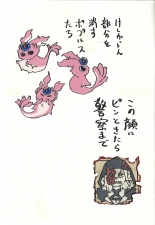 けしからん
部分を
消す
ポプルス
たち
この顔に
ピンときたら
警察まで